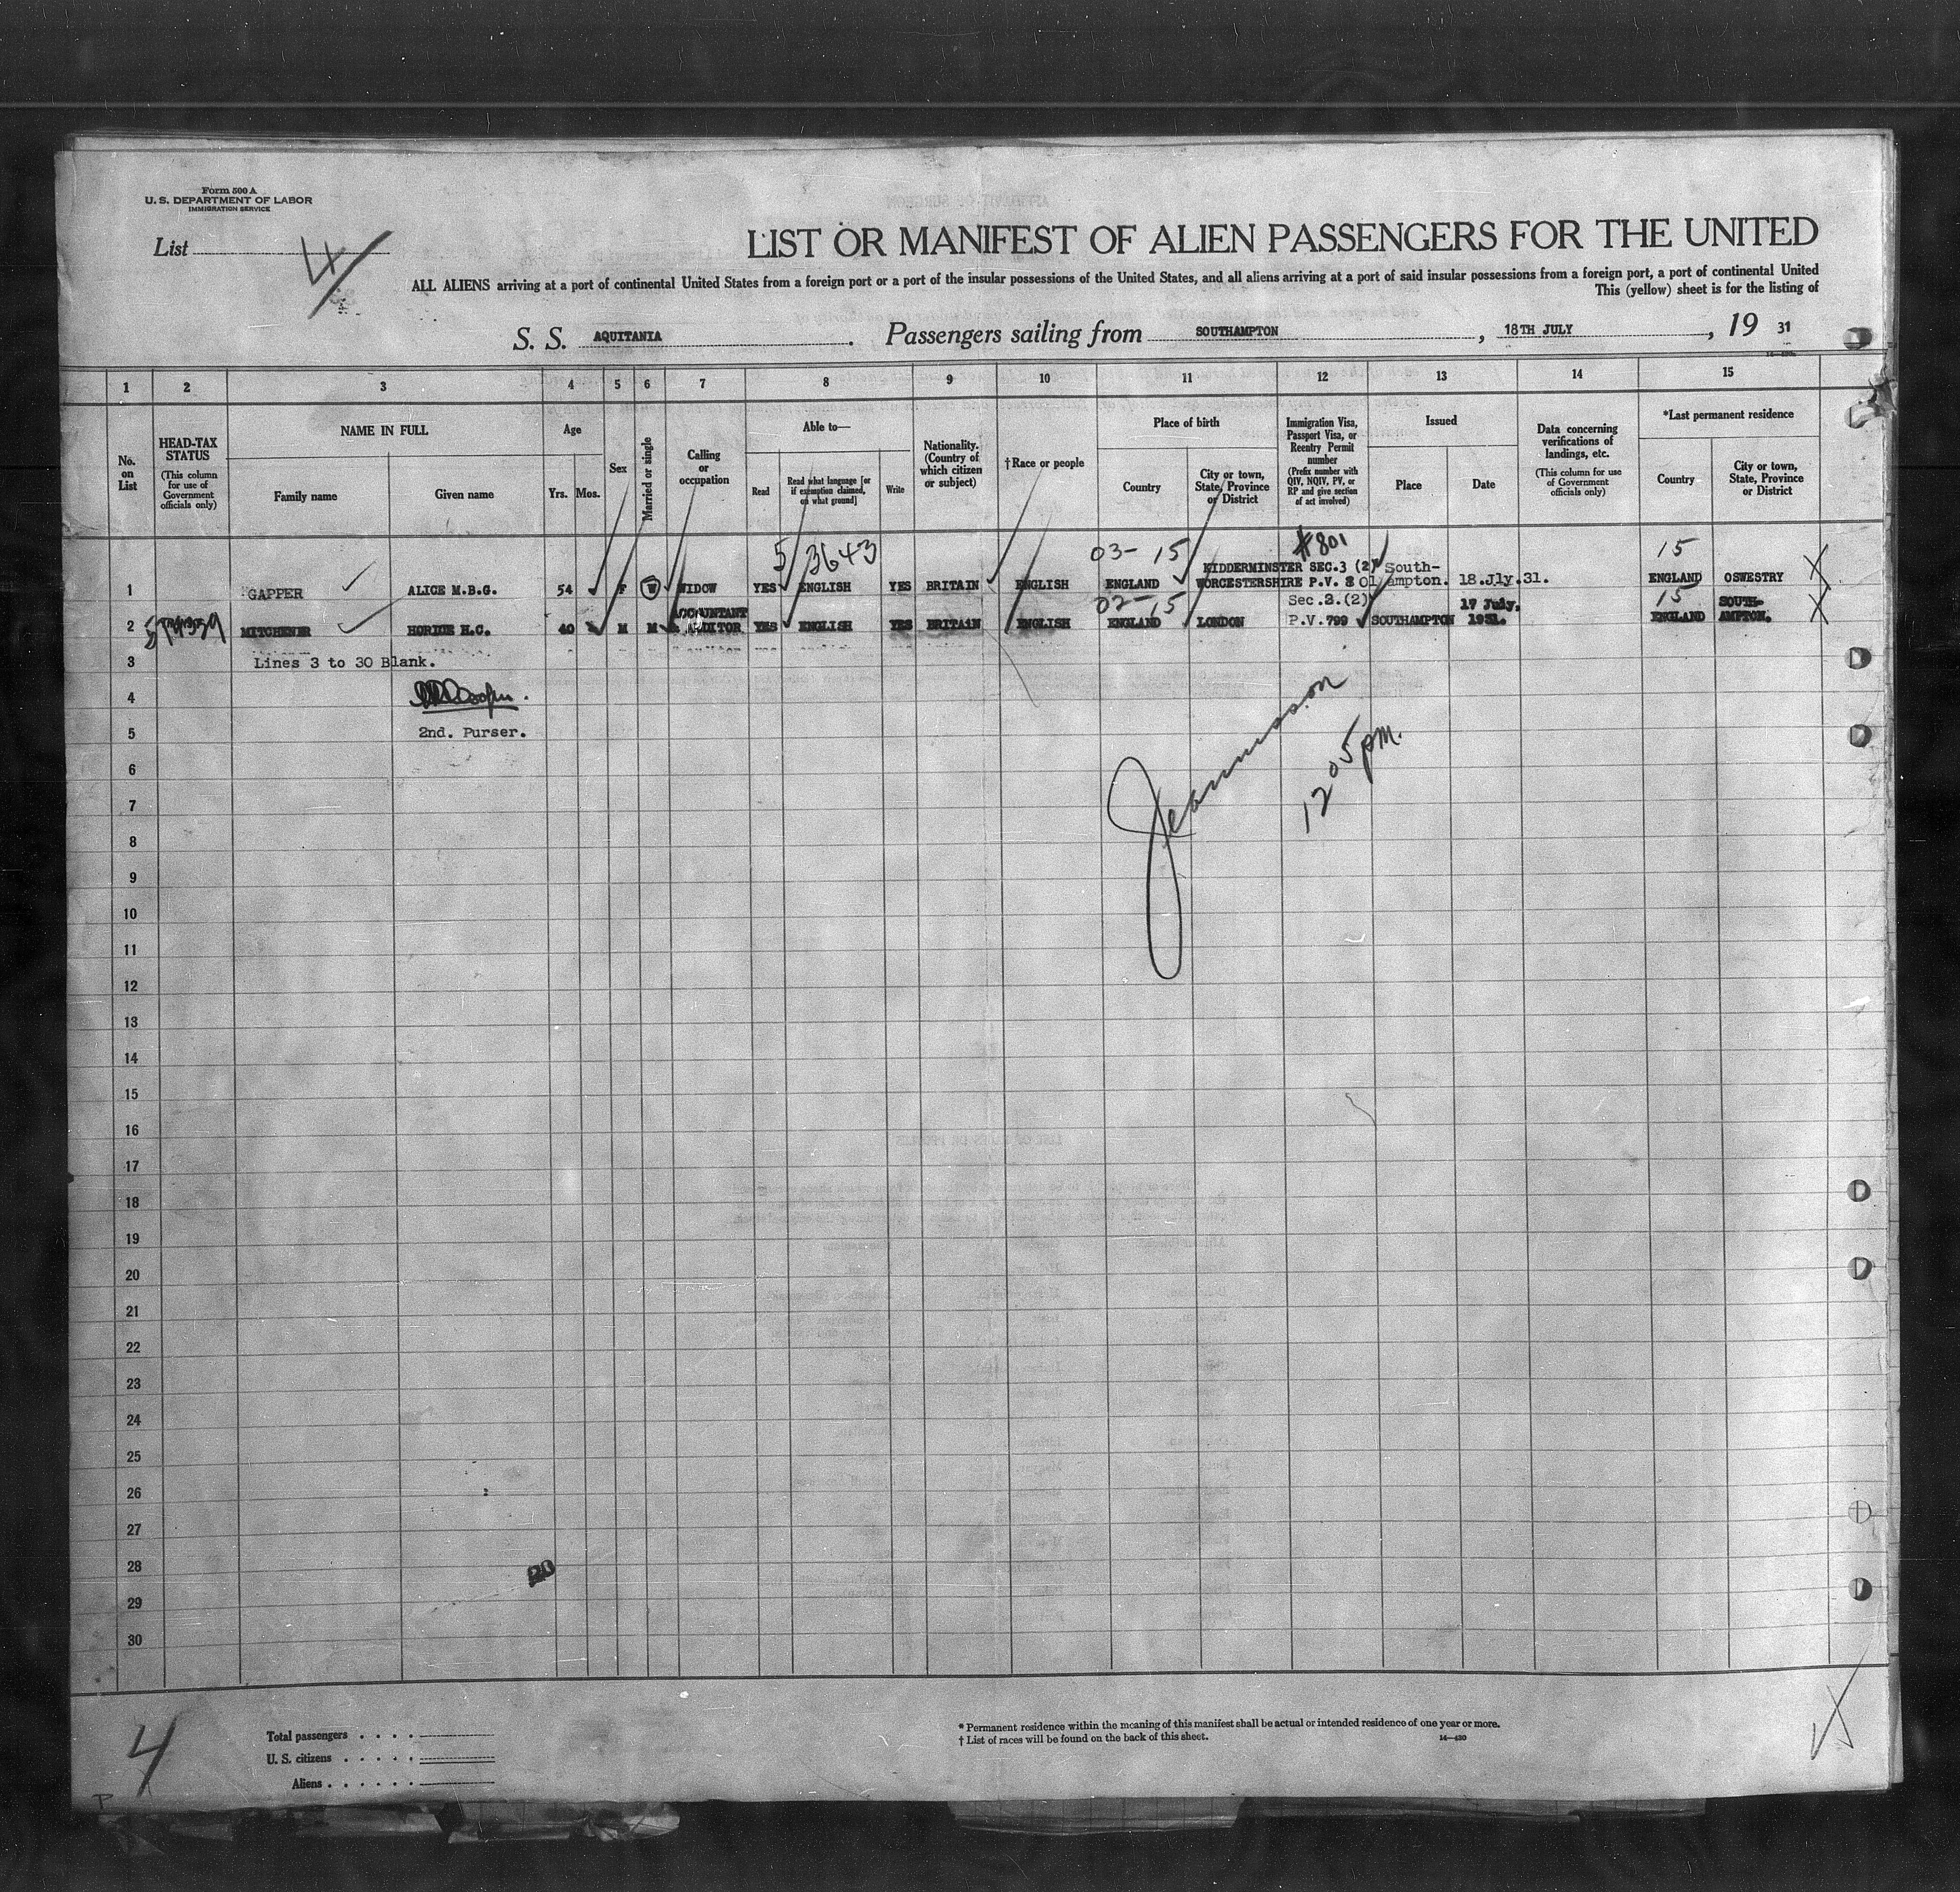 Form 500 A
U. S. DEPARTMENT OF LABOR
IMMIGRATION SERVICE
List 4
LIST OR MANIFEST OF ALIEN PASSENGERS FOR THE UNITED
ALL ALIENS arriving at a port of continental United States from a foreign port or a port of the insular possessions of the United States, and all aliens arriving at a port of said insular possessions from a foreign port, a port of continental United
This (yellow) sheet is for the listing of
S. S. AQUITANIA. Passengers sailing from SOUTHAMPTON, 18TH JULY, 19 31
1 2 3 4 5 6 7 8 9 10 11 12 13 14 15
No. on List
HEAD-TAX STATUS
(This column for use of Government officials only)
NAME IN FULL
Family name
Given name
Age
Yrs. Mos.
Sex
Married or single
Calling or occupation
Able to—
Read
Read what language [or if exemption claimed, on what ground]
Write
Nationality. (Country of which citizen or subject)
†Race or people
Place of birth
Country
City or town, State, Province or District
Immigration Visa, Passport Visa, or Reentry Permit number
(Prefix number with QIV, NQIV, PV, or RP and give section of act involved)
Issued
Place
Date
Data concerning verifications of landings, etc.
(This column for use of Government officials only)
*Last permanent residence
Country
City or town, State, Province or District
5 3643 03- 15 #801 15
1 GAPPER ALICE M.B.G. 54 F W WIDOW YES ENGLISH YES BRITAIN ENGLISH ENGLAND KIDDERMINSTER WORCESTERSHIRE SEC.3 (2) P.V. 801 South-ampton. 18.Jly.31. ENGLAND OSWESTRY
02-15 15
2 MITCHENER H.C. 40 M M ACCOUNTANT AUDITOR YES ENGLISH YES BRITAIN ENGLISH ENGLAND LONDON Sec.3.(2) P.V.799 SOUTHAMPTON 17 July, 1931. ENGLAND SOUTH-AMPTON.
3 Lines 3 to 30 Blank.
4
5 2nd. Purser.
12 05 pm.
6
7
8
9
10
11
12
13
14
15
16
17
18
19
20
21
22
23
24
25
26
27
28
29
30
4
Total passengers
U. S. citizens
Aliens
* Permanent residence within the meaning of this manifest shall be actual or intended residence of one year or more.
† List of races will be found on the back of this sheet.
14—430